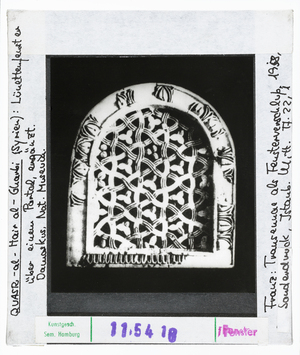 QUASR-al-Hair al-Gharbi (Syrien): Lünettenfenster
über einem Portal, ergänzt.
Damaskus, Nat. Museum.
Franz: Transennae als Fensterverschluß,
Sonderdruck, Istanb. Mitt. 7. 22/1
Kunstgesch.
Sem. Hamburg
11.54 18
Fenster